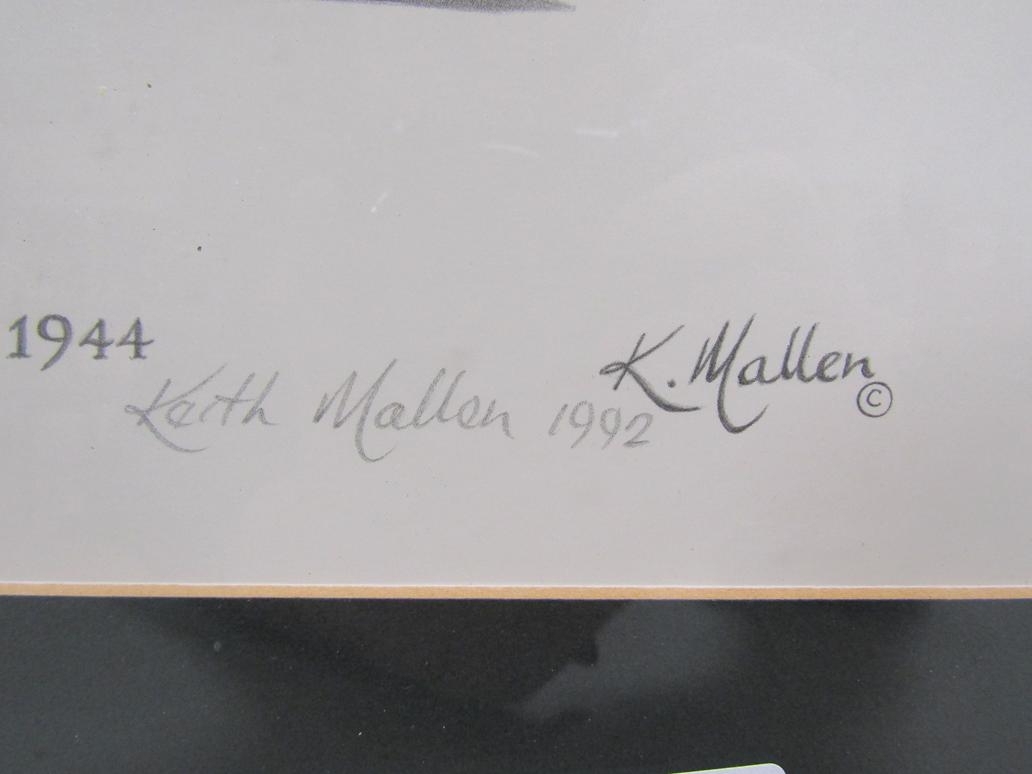 1944
Keith Mallen 1992
K. Mallen
©